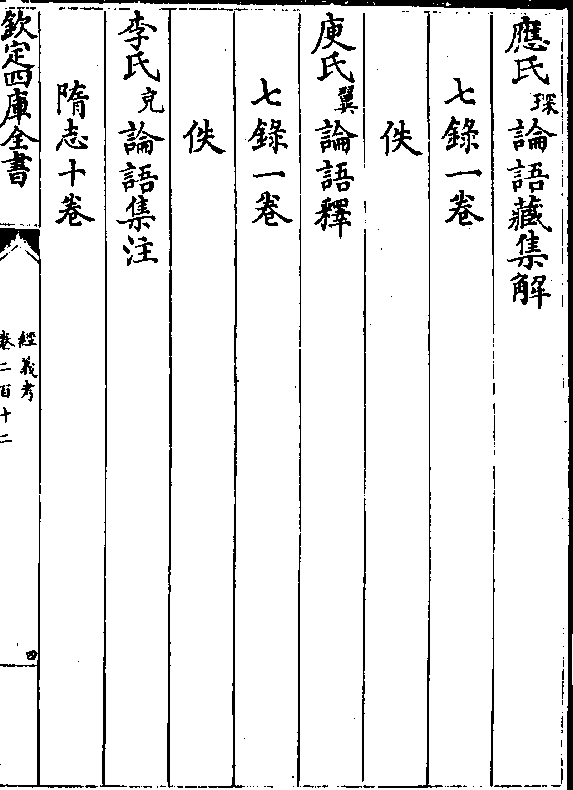 應氏琛論語藏集解
七錄一卷
佚
庾氏翼論語釋
七錄一卷
佚
李氏充論語集注
隋志十卷
欽定四庫全書
經義考
卷二百十二
四